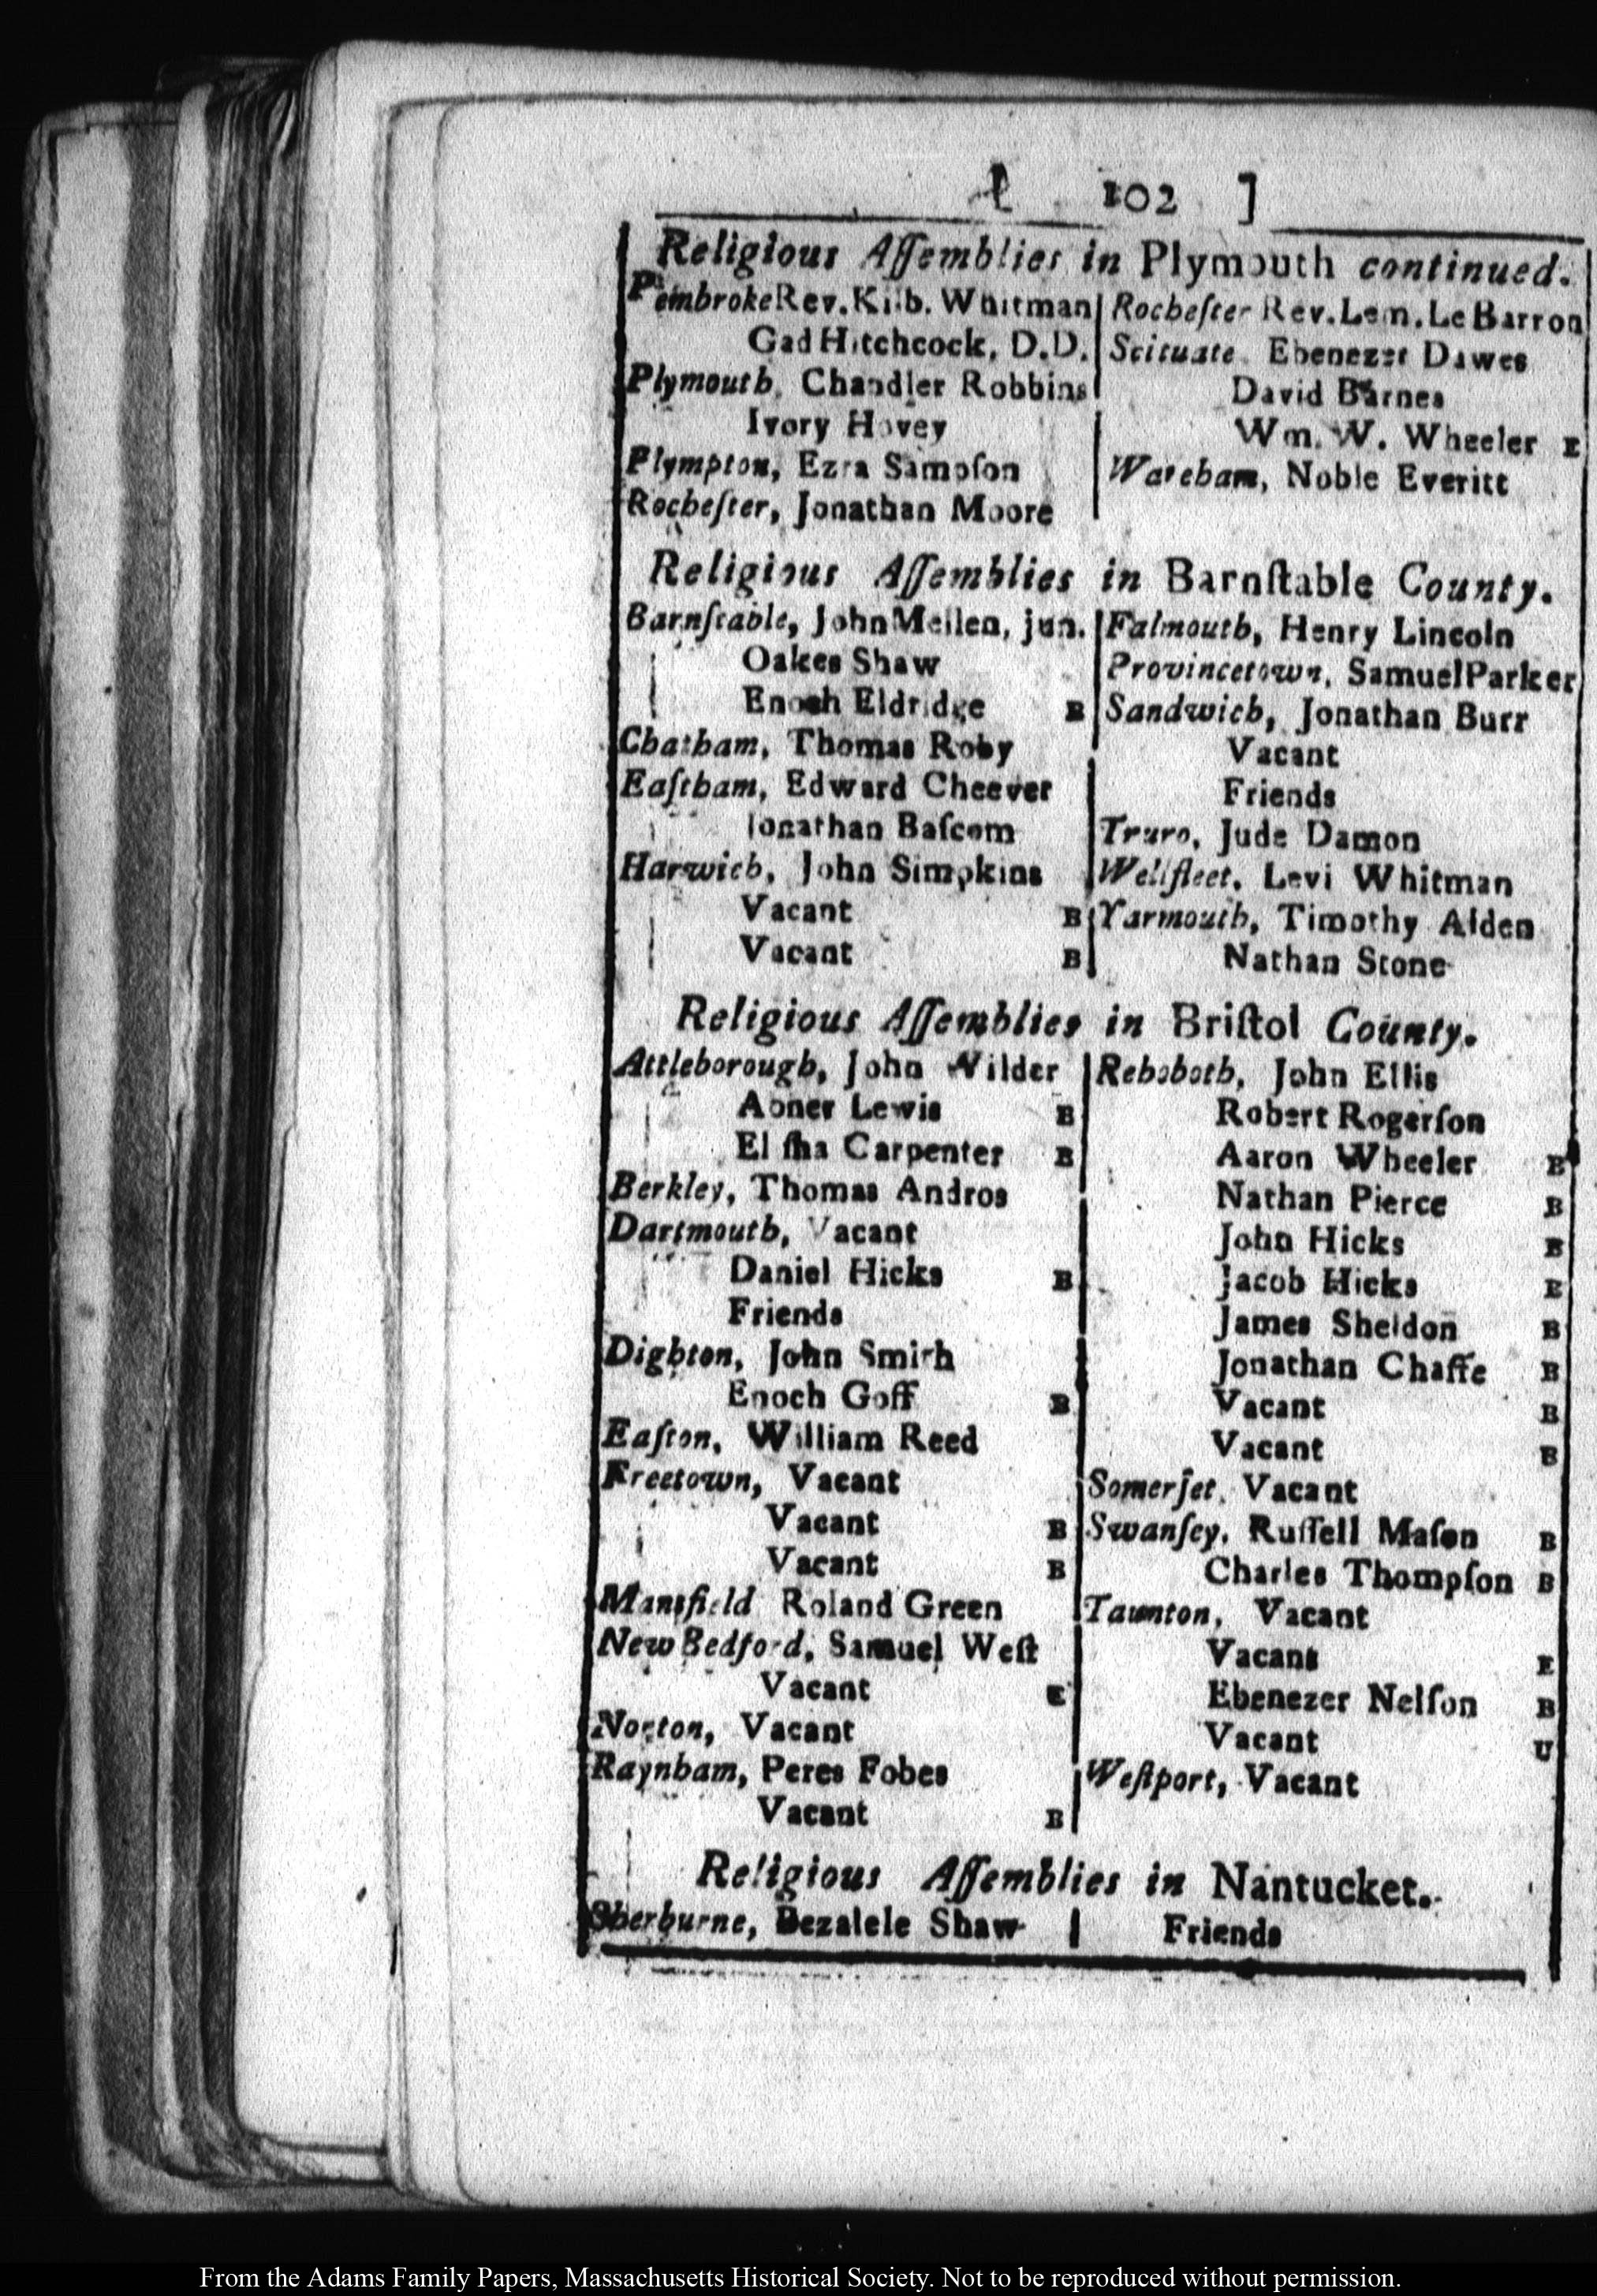 [ 102 ]
Religious Aſſemblies in Plymouth continued.
Pembroke Rev. Kilb. Whitman
Gad Hitchcock, D.D.
Plymouth, Chandler Robbins
Ivory Hovey
Plympton, Ezra Sampſon
Rocheſter, Jonathan Moore
Rocheſter Rev. Lem. Le Barron
Scituate, Ebenezer Dawes
David Barnes
Wm. W. Wheeler E
Wareham, Noble Everitt
Religious Aſſemblies in Barnſtable County.
Barnſtable, John Mellen, jun.
Oakes Shaw
Enoch Eldridge B
Chatham, Thomas Roby
Eaſtham, Edward Cheever
Jonathan Baſcom
Harwich, John Simpkins
Vacant B
Vacant B
Falmouth, Henry Lincoln
Provincetown, Samuel Parker
Sandwich, Jonathan Burr
Vacant
Friends
Truro, Jude Damon
Wellfleet, Levi Whitman
Yarmouth, Timothy Alden
Nathan Stone
Religious Aſſemblies in Briſtol County.
Attleborough, John Wilder
Abner Lewis B
Eliſha Carpenter B
Berkley, Thomas Andros
Dartmouth, Vacant
Daniel Hicks B
Friends
Dighton, John Smith
Enoch Goff B
Eaſton, William Reed
Freetown, Vacant
Vacant B
Vacant B
Mansfield Roland Green
New Bedford, Samuel Weſt
Vacant E
Norton, Vacant
Raynham, Peres Fobes
Vacant B
Rehoboth, John Ellis
Robert Rogerſon
Aaron Wheeler B
Nathan Pierce B
John Hicks B
Jacob Hicks B
James Sheldon B
Jonathan Chaffe B
Vacant B
Vacant B
Somerſet, Vacant
Swanſey, Ruſſell Maſon B
Charles Thompſon B
Taunton, Vacant
Vacant E
Ebenezer Nelſon B
Vacant U
Weſtport, Vacant
Religious Aſſemblies in Nantucket.
Sherburne, Bezalele Shaw
Friends
From the Adams Family Papers, Massachusetts Historical Society. Not to be reproduced without permission.